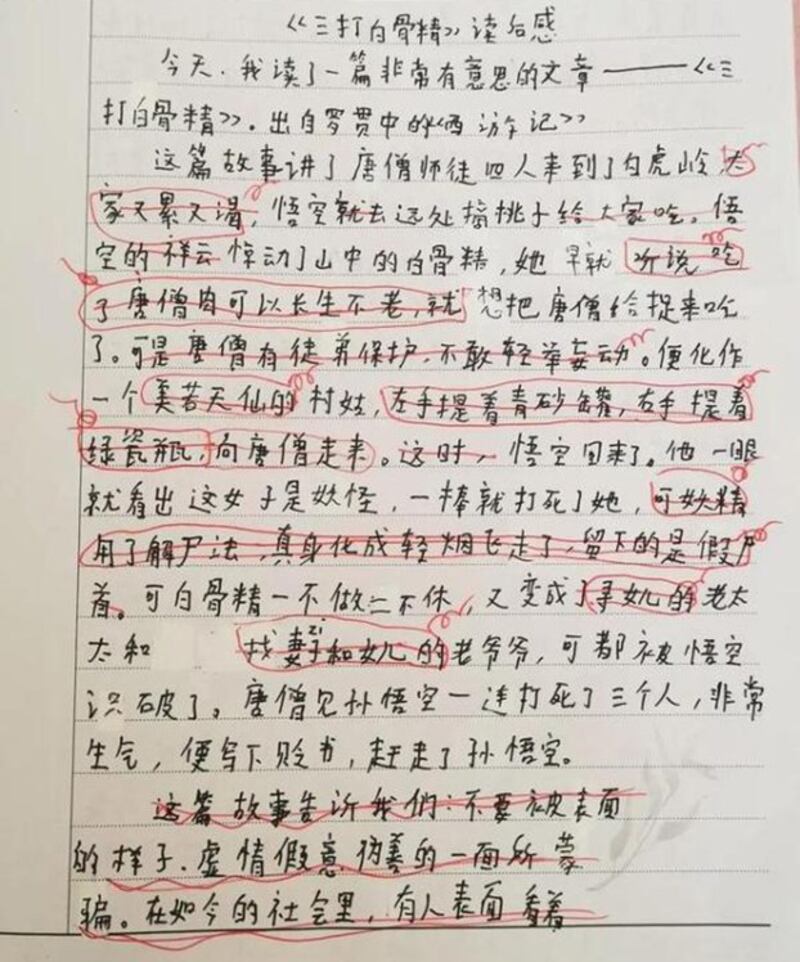 《三打白骨精》读后感
今天.我读了一篇非常有意思的文章——《三
打白骨精》.出自罗贯中的《西游记》
这篇故事讲了唐僧师徒四人来到了白虎岭,大
家又累又渴,悟空就去远处摘桃子给大家吃。悟
空的祥云惊动了山中的白骨精,她早就听说吃
了唐僧肉可以长生不老,就想把唐僧给捉来吃
了。可是唐僧有徒弟保护,不敢轻举妄动。便化作
一个美若天仙的村姑,左手提着青砂罐,右手提着
绿瓷瓶,向唐僧走来。这时,悟空回来了。他一眼
就看出这女子是妖怪,一棒就打死了她,可妖精
用了解尸法,真身化成轻烟飞走了,留下的是假尸
首。可白骨精一不做二不休,又变成了寻女儿的老太
太和找妻子和女儿的老爷爷,可都被悟空
识破了。唐僧见孙悟空一连打死了三个人,非常
生气,便写下贬书,赶走了孙悟空。
这篇故事告诉我们:不要被表面
的样子.虚情假意伪善的一面所蒙
骗。在如今的社会里,有人表面看着